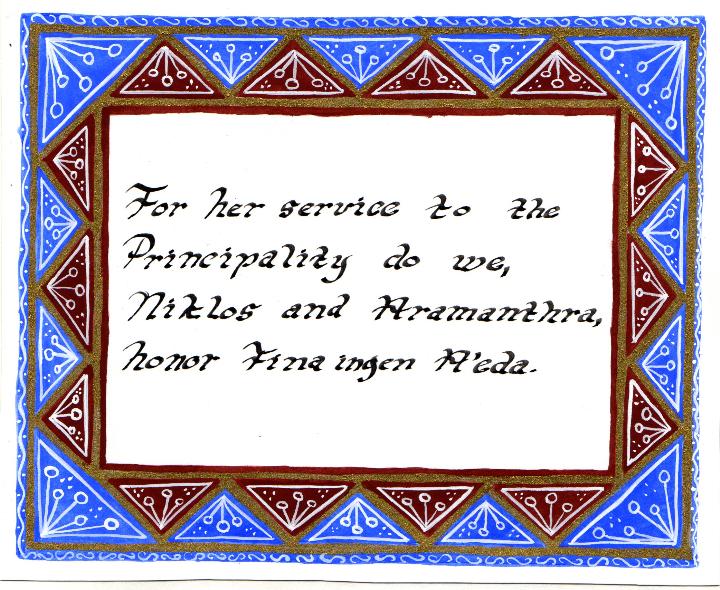 For her service to the
Principality do we,
Niklos and Aramanthra,
honor Fina ingen A'eda.